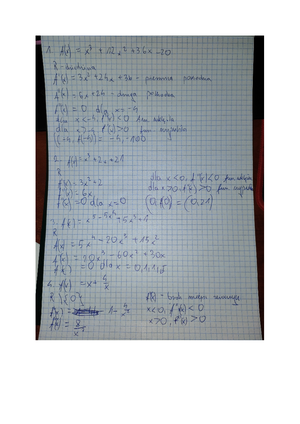 1. f(x) = x³ + 12x² + 36x - 20
R - dziedzina
f'(x) = 3x² + 24x + 36 - pierwsza pochodna
f''(x) = 6x + 24 - druga pochodna
f''(x) = 0 dla x = -4
dla x < -4, f''(x) < 0 fun. wklęsła
dla x > -4 f''(x) > 0 fun. wypukła
(-4, f(-4)) = -4, -100
2. f(x) = x³ + 2x + 21
R
f'(x) = 3x² + 2
f''(x) = 6x
f''(x) = 0 dla x = 0
dla x < 0, f''(x) < 0 fun. wklęsła
dla x > 0, f''(x) > 0 fun. wypukła
(0, f(0)) = (0, 21)
3. f(x) = x⁵ - 5x⁴ + 5x³ + 1
R
f'(x) = 5x⁴ - 20x³ + 15x²
f''(x) = 20x³ - 60x² + 30x
f''(x) = 0 dla x =
4. f(x) = x + 4/x
R \ {0}
f'(x) = 1 - 4/x²
f''(x) = 8/x³
f''(x) - brak miejsc zerowych
x < 0, f''(x) < 0
x > 0, f''(x) > 0